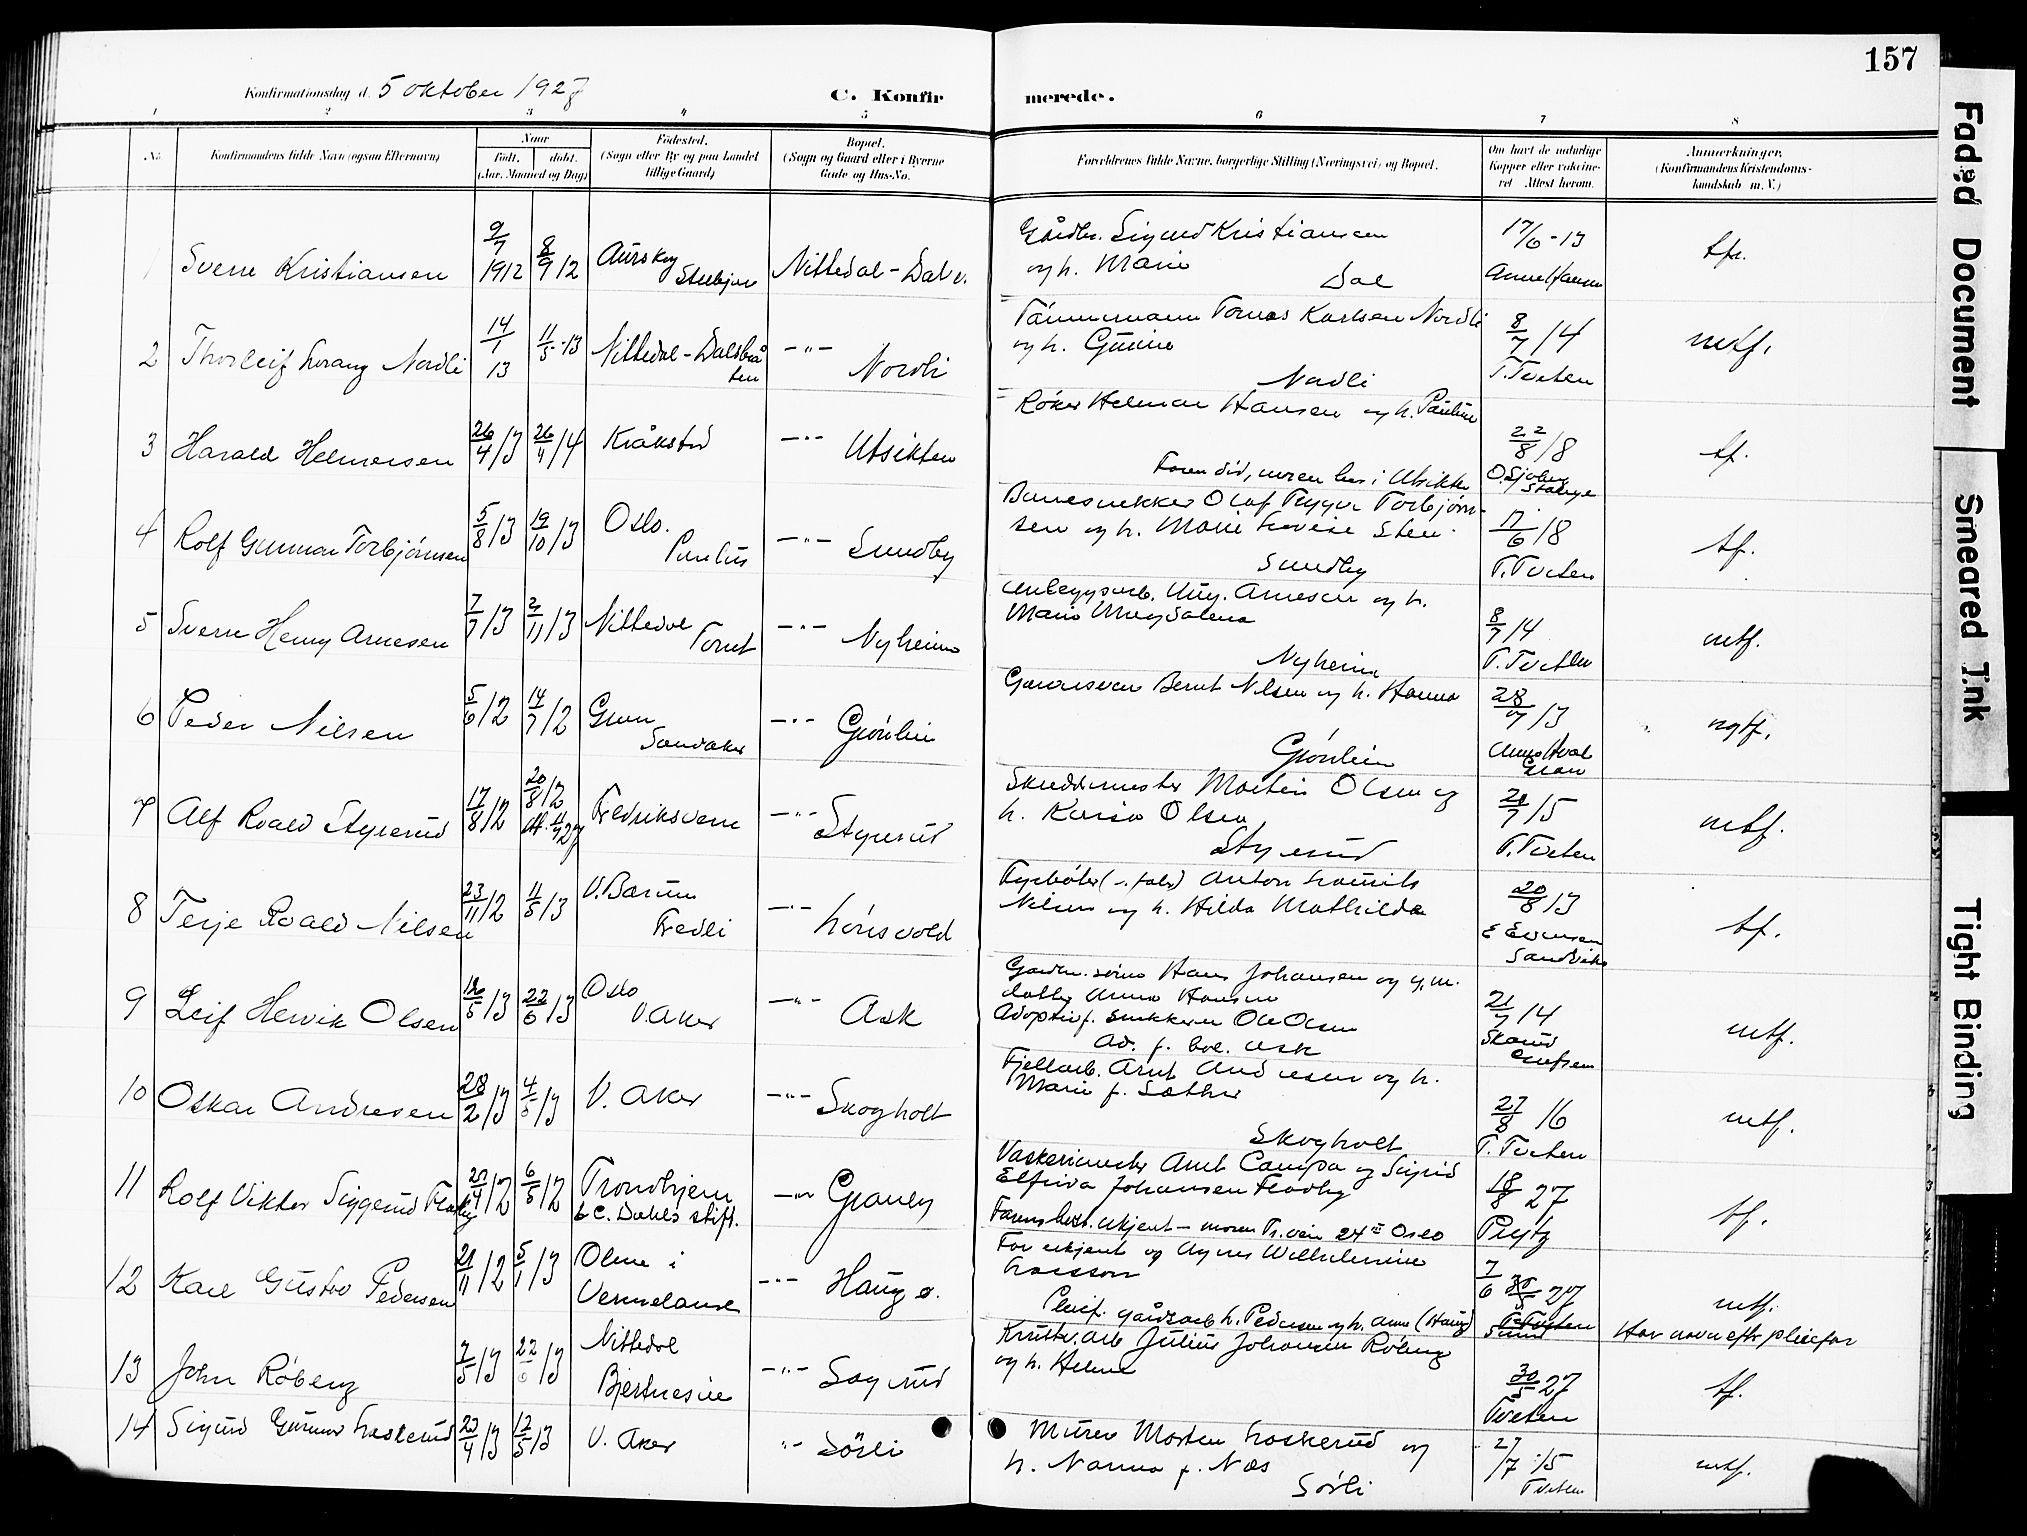 157
Konfirmationsdag d. 5 oktober 1927
C. Konfir merede.
1 2 3 4 5 6 7 8
No.
Konfirmandens fulde Navn (ogsaa Efternavn)
Naar
født. døbt.
(Aar, Maaned og Dag)
Fødested.
(Sogn eller By og paa Landet
tillige Gaard)
Bopæl.
(Sogn og Gaard eller i Byerne
Gade og Hus-No.
Forældrenes fulde Navne, borgerlige Stilling (Næringsvei) og Bopæl.
Om havt de naturlige
Kopper eller vakcine-
ret Attest herom.
Anmærkninger,
(Konfirmandens Kristendoms-
kundskab m. V.)
1 Sverre Kristiansen 9/7 1912 8/9 12 Aurskog Nittedal - Dal v.
Gårdbr. Sigurd Kristiansen
og h. Marie
Dal
17/6-13
tfr.
2 Thorleif Lorang Nordli 14/1 13 11/5-13 Nittedal - Dalsbrå
ten
-"- Nordli
Tømmermann Tomas Karlsen Nordli
og h. Gunine
Nordli
8/7 14
T. Tveten
mtf.
3 Harald Helmersen 26/4 13 26/4 14 Kråkstad -"- Utsikten
Røker Helmar Hansen og h. Pauline
Faren død, moren bor i Utsikten
22/8 18
Stange
tf.
4 Rolf Gunnar Torbjørnsen 5/8 13 19/10 13 Oslo.
Paulus
-"- Sundby
Olaf Trygve Torbjørn-
sen og h. Marie Lovise Sten.
Sundby
17/6 18
T. Tveten
tf.
5 Sverre Henry Arnesen 7/7 13 2/11 13 Nittedal -"- Nyheim
Anleggsarb. Aug. Arnesen og h.
Marie Magdalena
Nyheim
8/7 14
T. Tveten
mtf.
6 Peder Nilsen 5/6 12 14/7 12 Gran
Sandaker
-"- Grønlien
Bernt Nilsen og h. Hanna
Grønlien
28/7 13
Gran
7 Alf Roald Styrerud 17/8 12 20/8 12 Fredriksværn -"- Styrerud
Skreddermester Martin Olsen og
h. Karen Olsen
Styrerud
21/7 15
T. Tveten
mtf.
8 Terje Roald Nilsen 23/11 12 11/5 13 V. Bærum
Fredli
-"- Lønsvold
Fyrbøter Anton Lauritz
Nilsen og h. Hilda Mathilde
20/8 13
E Evensen
Sandvika
tf.
9 Leif Henrik Olsen 12/5 13 22/6 13 Oslo
V. Aker
-"- Ask
Hans Johansen og
Anna Hansen
Adoptivf. snekker Ole Olsen
Ad. f. bol. Ask
21/7 14
mtf.
10 Oskar Andresen 28/2 13 4/5 13 V. Aker -"- Skogholt
Fjellarb. Arnt Andresen og h.
Marie f. Sæther
Skogholt
27/8 16
T. Tveten
mtf.
11 Rolf Viktor Siggerud Fladby 20/4 12 6/5 12 Trondhjem
E.C. Dahls stift.
-"-
Vaskerimester Arnt Campa og Sigrid
Elfrida Johansen Fladby
Farens bost. ukjent - moren Tr. vein 24 II Oslo
18/8 27
tf.
12 Karl Gustav Pedersen 21/11 12 5/1 13 Olme i
Vermeland
-"- Haug ø.
Far ukjent og Agnes Wilhelmine
Larsson
Pleief. gårdsarb L. Pedersen og h. Anna (Haug)
7/6 27
mtf.
Har navn eftr pleiefar
13 John Røberg 7/5 13 22/6 13 Nittedal -"- Sagerud
Kruttv.arb Julius Johansen Røberg
og h. Helene
30/5 27
Tveten
tf.
14 Sigurd Gunnar Laskerud 23/4 13 12/5 13 V. Aker -"- Sörli
Murer Morten Laskerud og
h. Nanna f. Næs
Sörli
27/7 15
Tveten
mtf.
Faded Document
Smeared Ink
Tight Binding